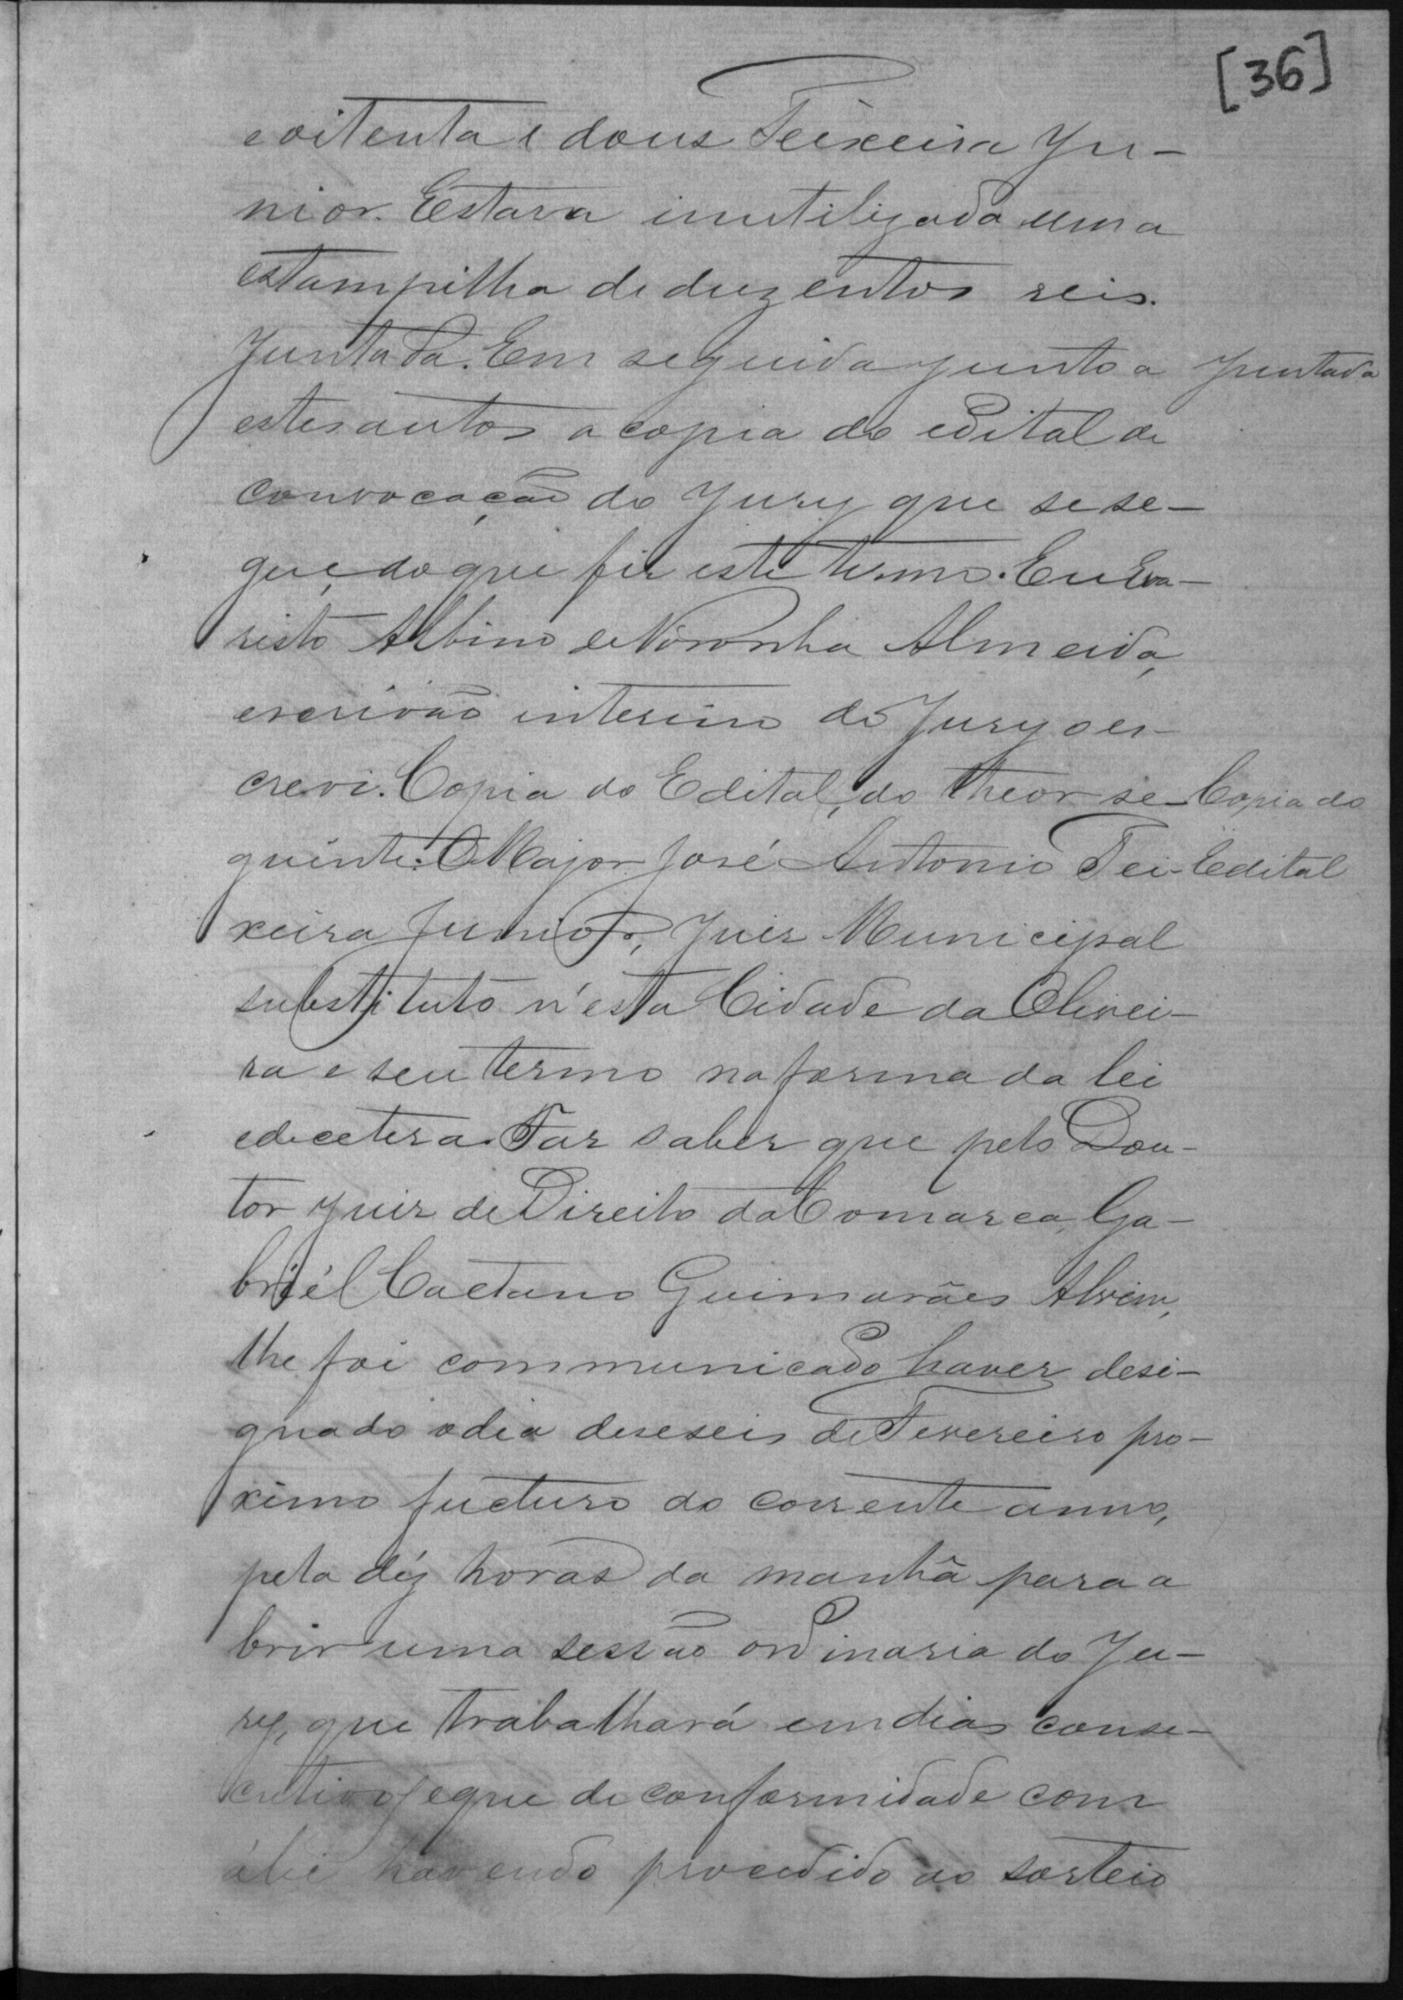 [36]
e oitenta e dous Teixeira Ju-
nior. Estava inutilizada uma
estampilha de duzentos reis.
Juntada. Em seguida junto a Juntada
estes autos a copia do edital de
convocação do Jury que se se-
gue, do que fiz este termo. Eu Eva-
risto Albino de Noronha Almeida,
escrivão interino do Jury o es-
crevi. Copia do Edital, do theor se- Copia do
guinte: O Major José Antonio Tei- Edital
xeira Junior, Juiz Municipal
substituto n'esta Cidade da Olivei-
ra e seu termo na forma da lei
edecetera. Faz saber que pelo Dou-
tor Juiz de Direito da Comarca, Ga-
briél Caetano Guimarães Alvim,
lhe foi communicado haver desi-
gnado o dia deseseis de Fevereiro pro-
ximo fucturo do corrente anno,
pela déz horas da manhã para a
brir uma sessão ordinaria do Ju-
ry, que trabalhará em dias conse-
cutivos, e que de conformidade com
a lei havendo procedido ao sorteio